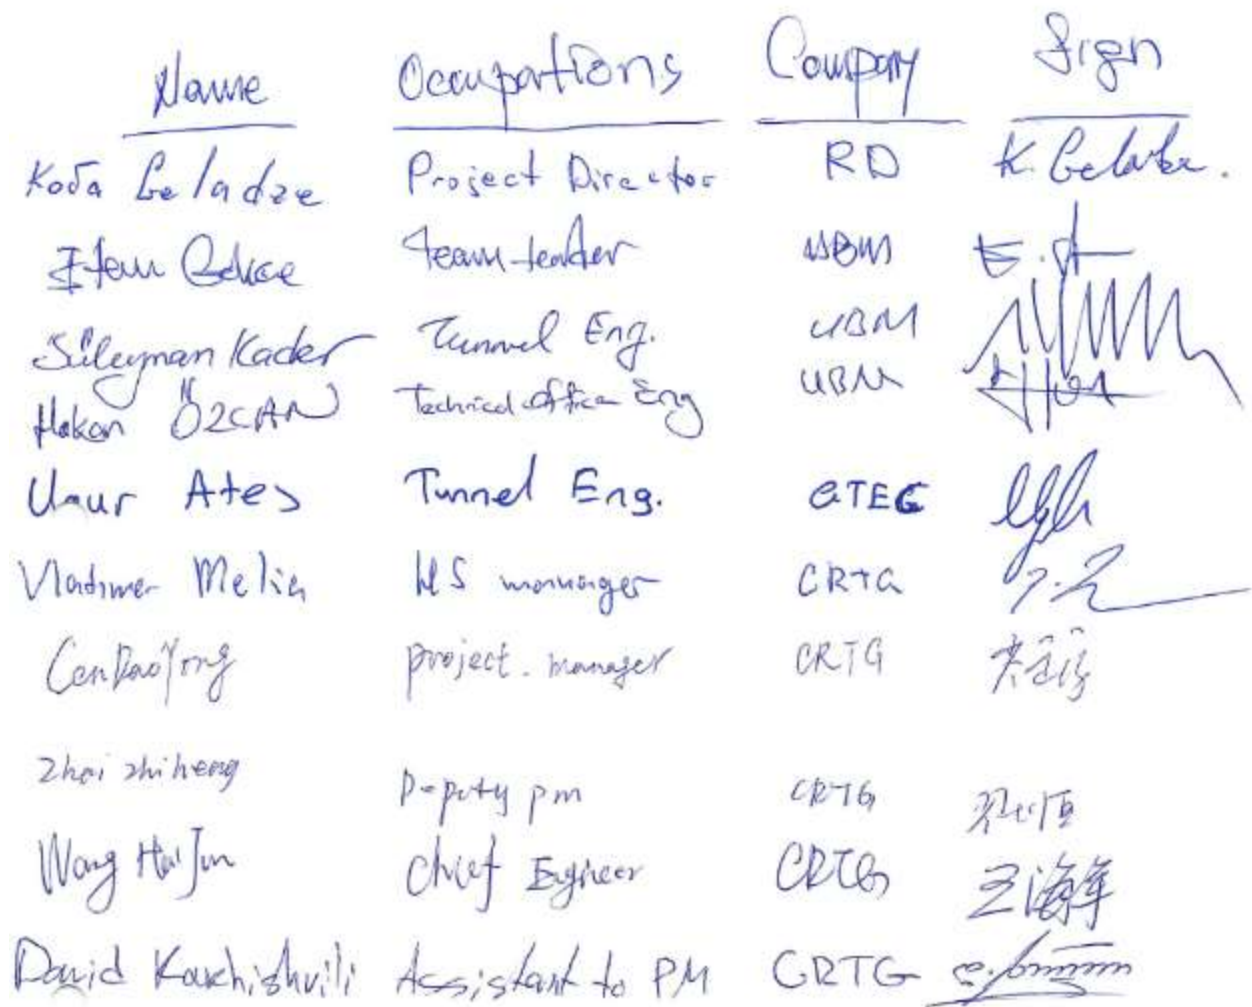 Name Occupations Company Sign
Koba Geladze Project Director RD K. Geladze.
team leader UBM
Süleyman Kader Tunnel Eng. UBM
Hakan ÖZCAN Technical office Eng UBM
Ugur Ates Tunnel Eng. GTEG
Vladimer Melia HS manager CRTG
CenDaoYong project. manager CRTG
Zhai zhiheng Deputy pm CRTG
Wang HaiJun Chief Engineer CRTG 王海军
David Kavchishvili Assistant to PM CRTG